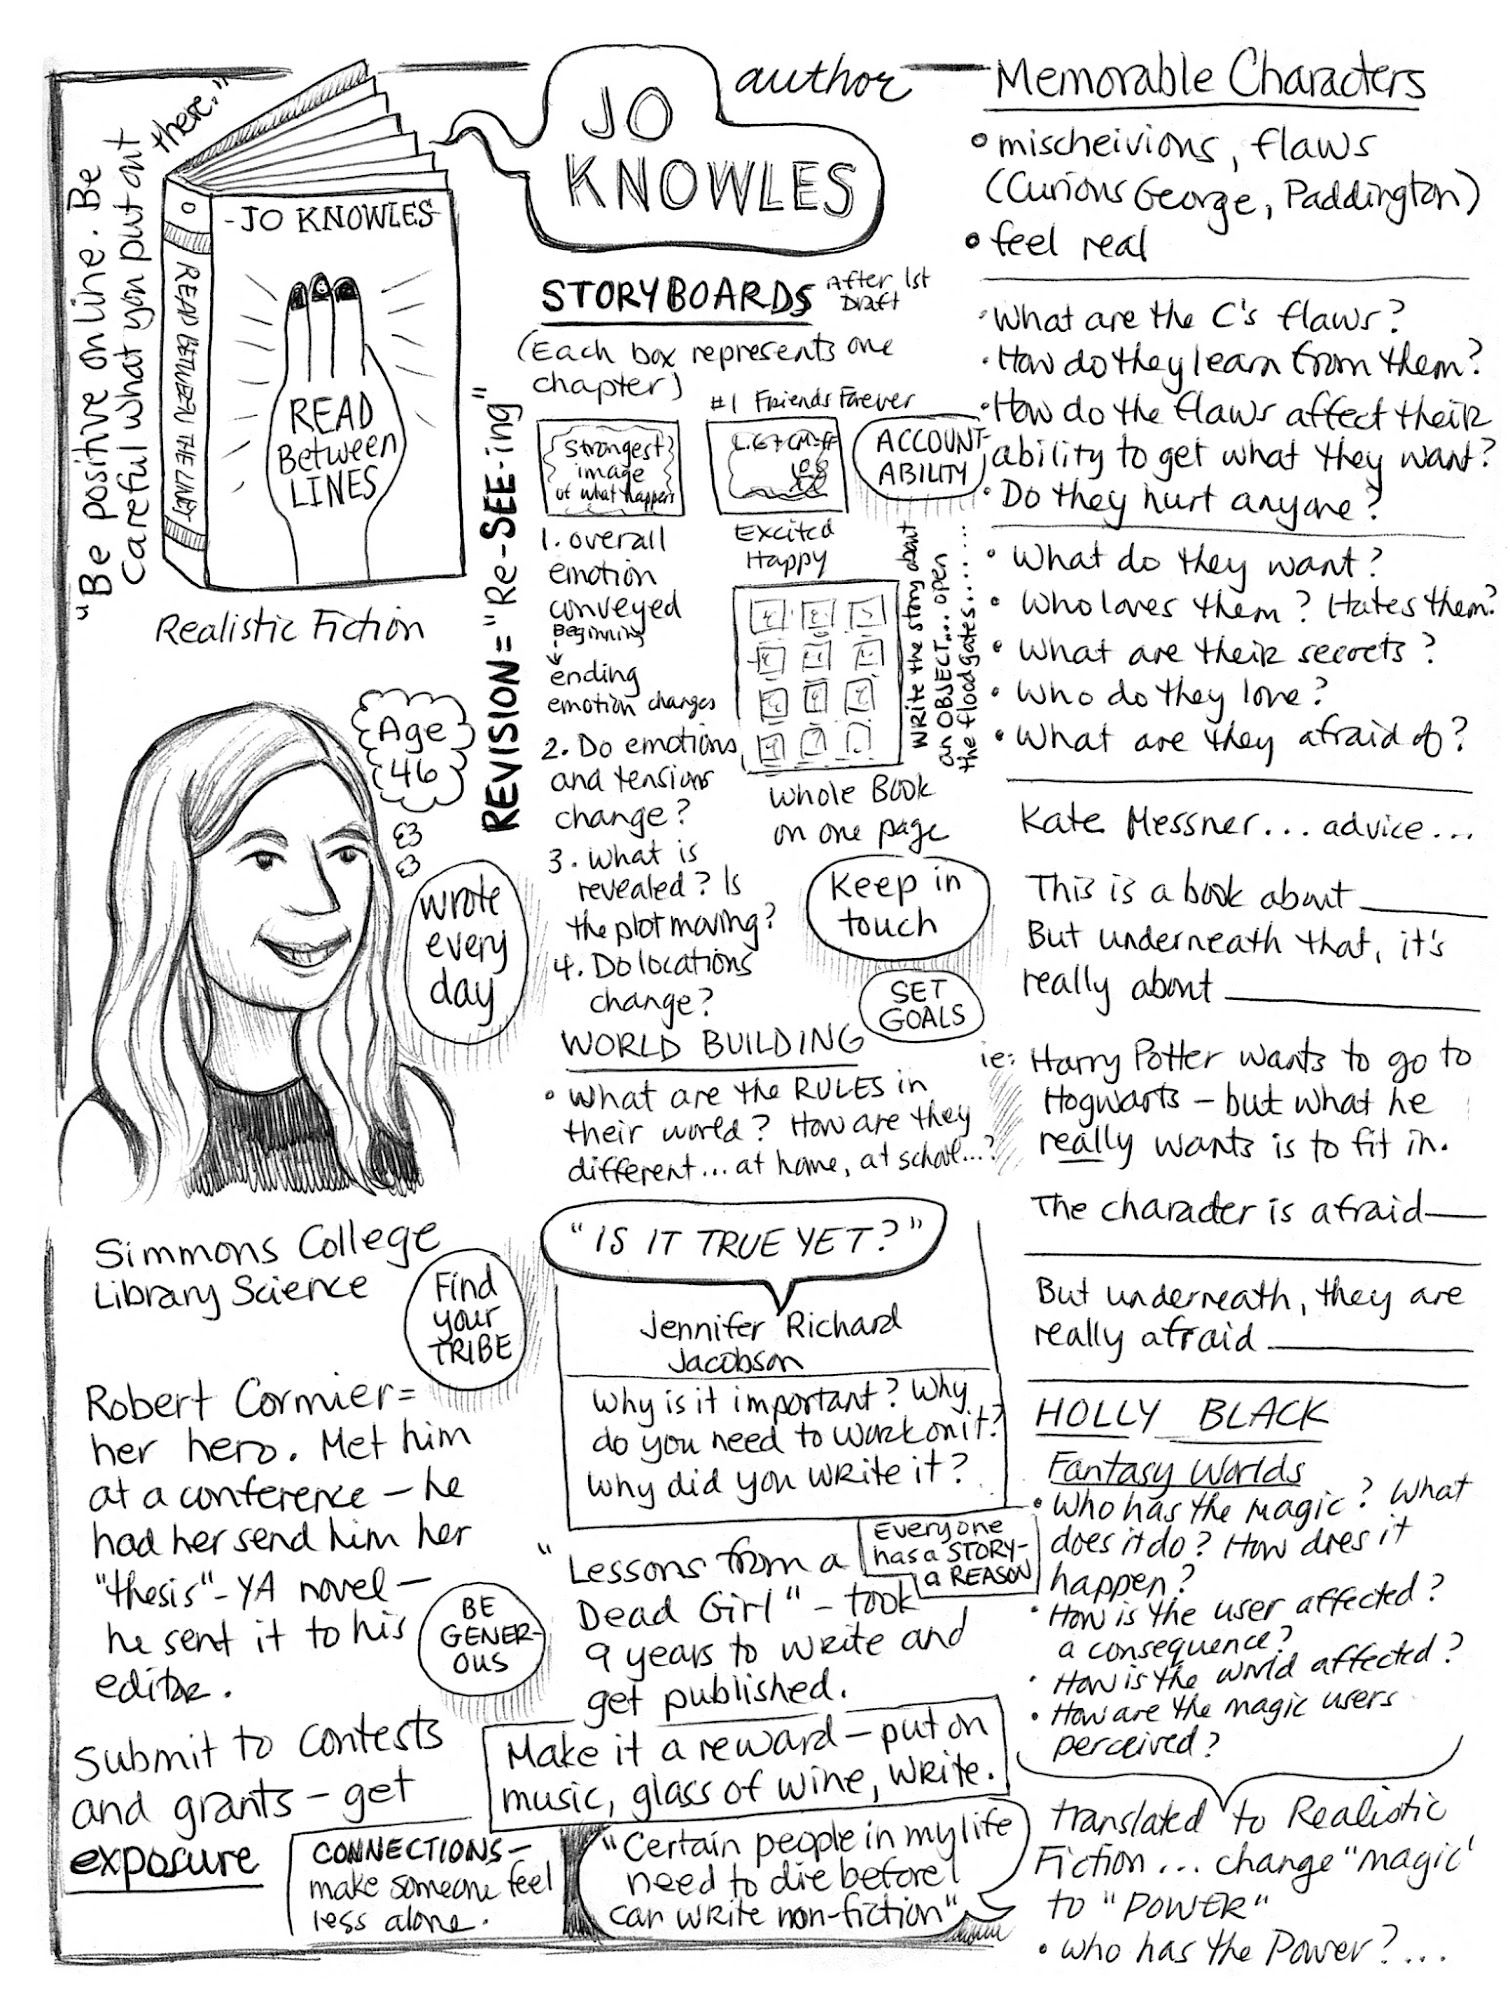 "Be positive online. Be
careful what you put out
there."
- JO KNOWLES -
READ
Between
LINES
READ BETWEEN THE LINES
Realistic Fiction
JO
KNOWLES
author
STORYBOARDS
After 1st
Draft
(Each box represents one
chapter)
REVISION = "Re-SEE-ing"
Strongest
image
of what happens
#1 Friends Forever
Excited
Happy
ACCOUNT-
ABILITY
1. overall
emotion
conveyed
Beginning
ending
emotion changes
2. Do emotions
and tensions
change?
3. What is
revealed? Is
the plot moving?
4. Do locations
change?
Whole Book
on one page
Write the story about
an OBJECT... open
the floodgates.........
Keep in
touch
SET
GOALS
WORLD BUILDING
• What are the RULES in
their world? How are they
different... at home, at school...?
Age
46
wrote
every
day
Simmons College
Library Science
Find
your
TRIBE
Robert Cormier =
her hero. Met him
at a conference – he
had her send him her
"thesis" - YA novel –
he sent it to his
editor.
BE
GENER-
OUS
Submit to contests
and grants – get
exposure
CONNECTIONS –
make someone feel
less alone.
"IS IT TRUE YET?"
Jennifer Richard
Jacobson
Why is it important? Why
do you need to work on it?
Why did you write it?
Everyone
has a STORY-
a REASON
"Lessons from a
Dead Girl" – took
9 years to write and
get published.
Make it a reward – put on
music, glass of wine, write.
"Certain people in my life
need to die before I
can write non-fiction"
Memorable Characters
• mischeivions, flaws
(Curious George, Paddington)
• feel real
• What are the C's flaws?
• How do they learn from them?
• How do the flaws affect their
ability to get what they want?
• Do they hurt anyone?
• What do they want?
• Who loves them? Hates them?
• What are their secrets?
• Who do they love?
• What are they afraid of?
Kate Messner... advice...
This is a book about ______
But underneath that, it's
really about ______
ie: Harry Potter wants to go to
Hogwarts – but what he
really wants is to fit in.
The character is afraid ______
But underneath, they are
really afraid ______
HOLLY BLACK
Fantasy Worlds
• Who has the magic? What
does it do? How does it
happen?
• How is the user affected?
a consequence?
• How is the world affected?
• How are the magic users
perceived?
translated to Realistic
Fiction... change "magic"
to "POWER"
• Who has the Power?...